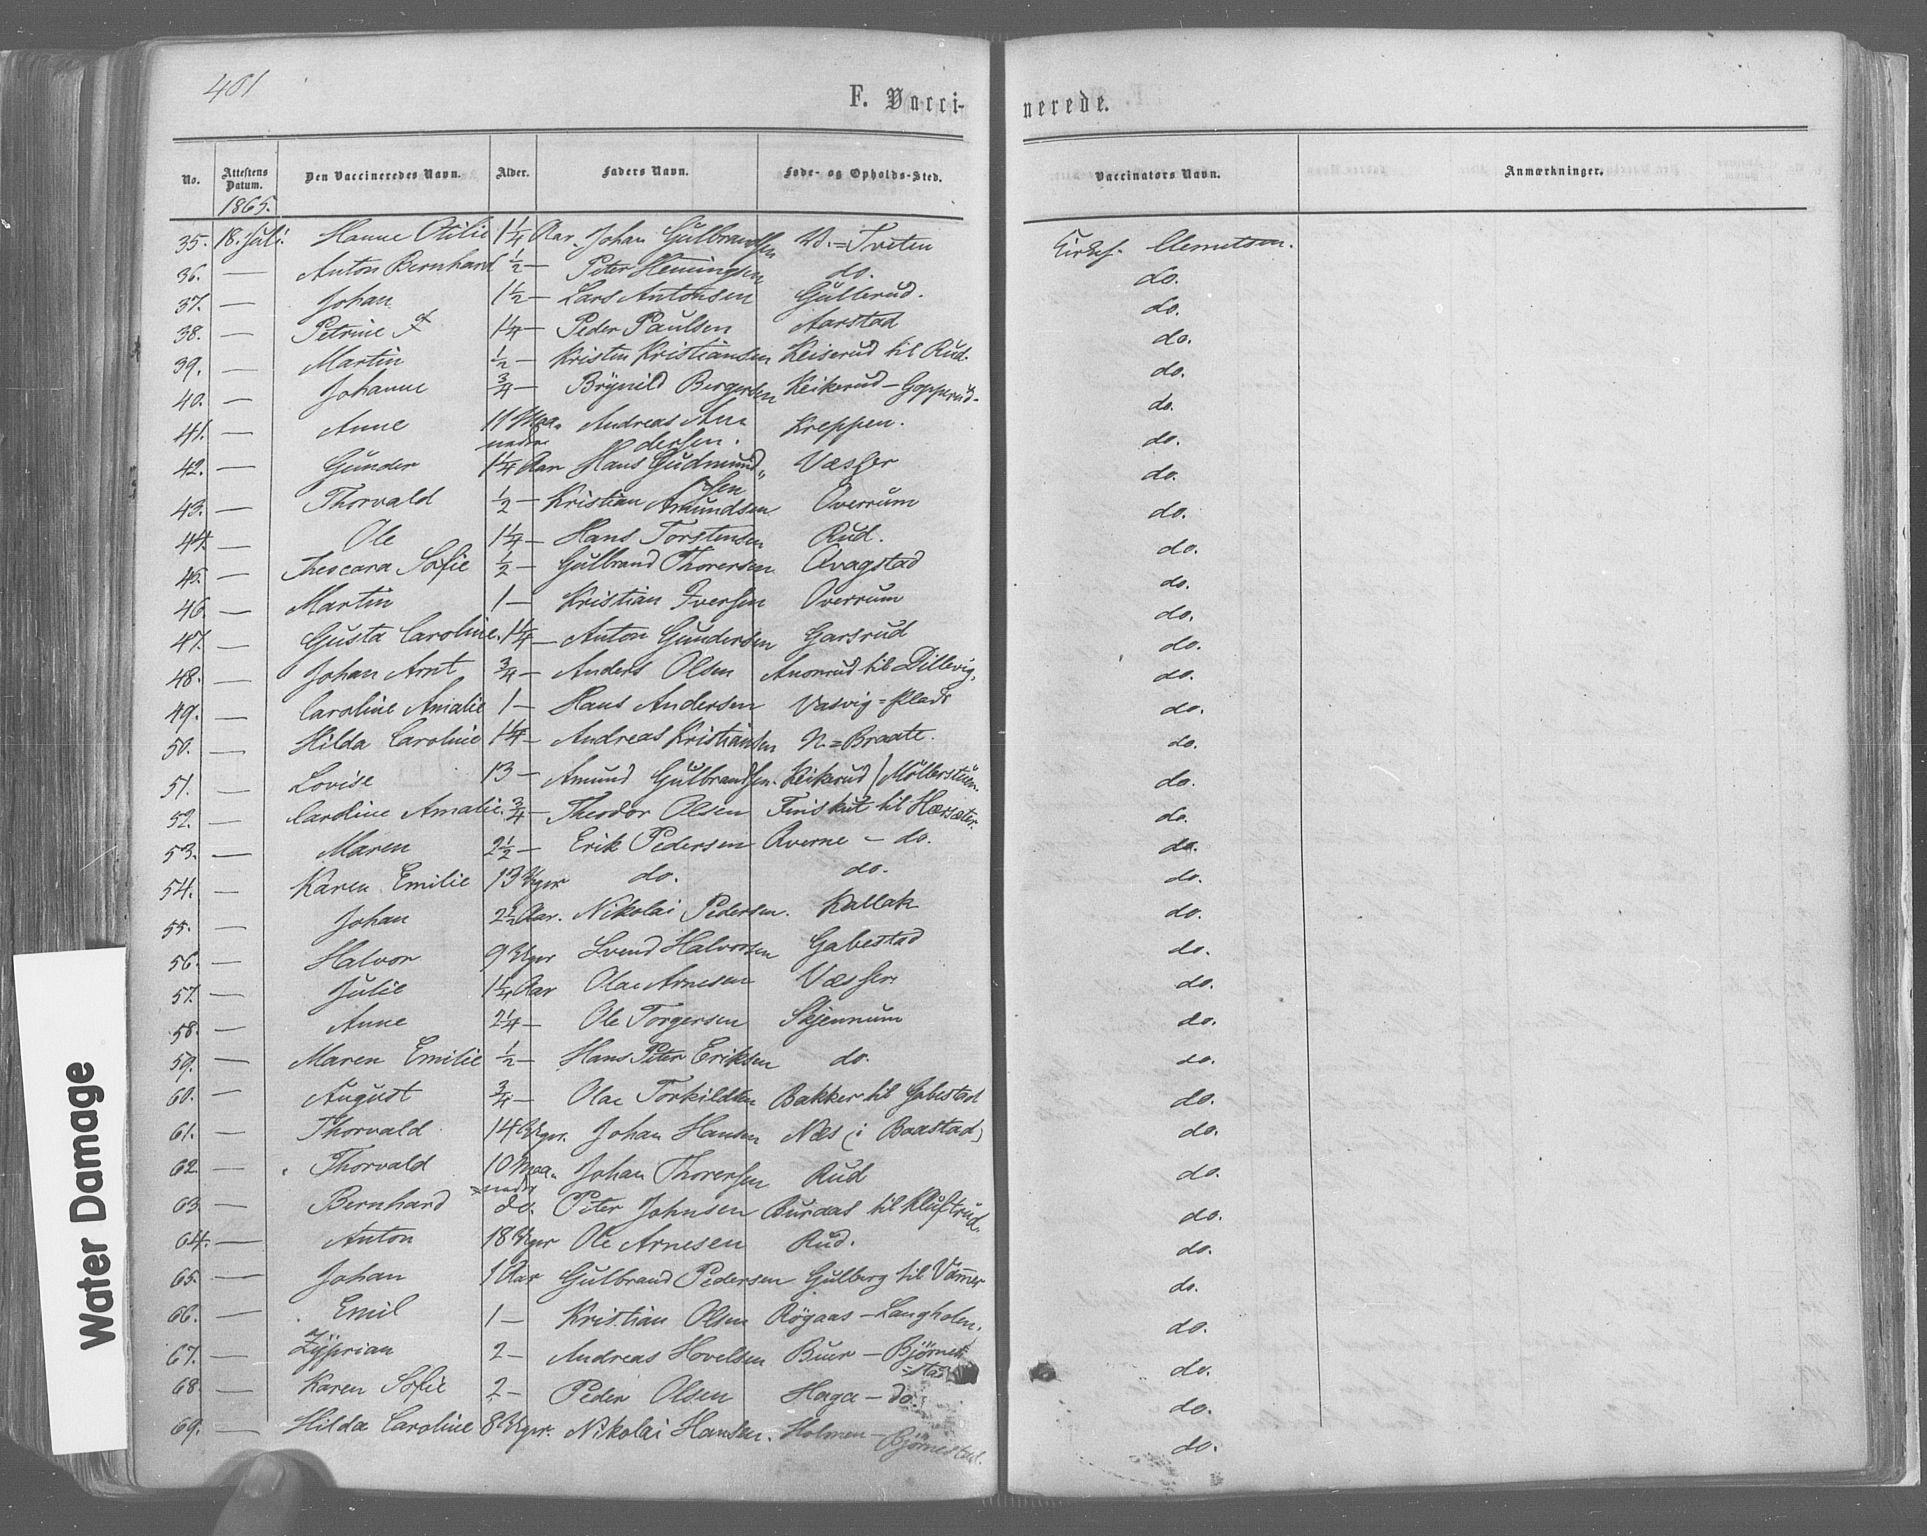 401
F. Vacci- nerede.
No. Attestens Datum. Den Vaccineredes Navn. Alder. Faders Navn. Føde- og Opholds-Sted. Vaccinators Navn. Anmærkninger.
1865.
35. 18. Juli. Hanne Otilie 1 1/4 Aar. Johan Gulbrandsen V.=Tveten Kirkes. Clemetsen.
36. — Anton Bernhard 1/2 — Peter Hemingsen do. do.
37. — Johan 1 1/2 — Lars Antonsen Gullerud. do.
38. — Petrine 1 1/4 — Peder Paulsen Aarstad do.
39. — Martin 1/2 — Kristen Kristiansen Keiserud til Rud. do.
40. — Johanne 3/4 — Brynild Bergersen Keikerud — Gopperud. do.
41. — Anne 11 Maa- neder Andreas An- dersen. Kreppen. do.
42. — Gunder 1 1/4 Aar Hans Gudmund„ sen Væsser do.
43. — Thorvald 1/2 — Kristian Amundsen Overrum do.
44. — Ole 1 1/4 — Hans Torstensen Rud. do.
45. — Sofie 1/2 — Gulbrand Thorersen Qvagstad do.
46. — Martin 1 — Kristian Iversen Overrum do.
47. — Gusta Caroline. 1 1/4 — Anton Gundersen Garsrud do.
48. — Johan Arnt 3/4 — Anders Olsen til Dillevig. do.
49. — Caroline Amalie 1 — Hans Andersen Vasvig=Plads do.
50. — Hilda Caroline 1 1/4 — Andreas Kristiansen N.=Braate. do.
51. — Lovise 13 — Amund Gulbrandsen. Keikerud / Møllerstuen. do.
52. — Caroline Amalie. 3/4 — Theodor Olsen Finskut til Hærsæter. do.
53. — Maren 2 1/2 — Erik Pedersen Qverne — do. do.
54. — Karen Emilie 13 Uger do. do. do.
55. — Johan 2 1/2 Aar. Nikolai Pedersen. Kallak do.
56. — Halvor 9 Uger Svend Halvorsen Gabestad do.
57. — Julie 1 1/4 Aar Olae Arnesen Væsser do.
58. — Anne 2 1/4 — Ole Torgersen Skjennum do.
59. — Maren Emilie 1/2 — Hans Peter Eriksen do. do.
60. — August 3/4 — Olae Torkildsen Bakker til Gabestad do.
61. — Thorvald 14 Uger. Johan Hansen Næs (i Baastad) do.
62. — Thorvald 10 Maa- neder Johan Thorersen Rud do.
63. — Bernhard do. Peter Johnsen Burdas til Kluftrud. do.
64. — Anton 18 Uger Ole Arnesen Rud. do.
65. — Johan 1 Aar Gulbrand Pedersen Gulberg til Vammer do.
66. — Emil 1 — Kristian Olsen Røgaas — Langholen. do.
67. — Zyprian 2 — Andreas Hovelsen Buer — Bjørne =stad do.
68. — Karen Sofie 2 — Peder Olsen Haga — do. do.
69. — Hilda Caroline 8 Uger. Nikolai Hansen. Holmen — Bjørnestad. do.
Water Damage